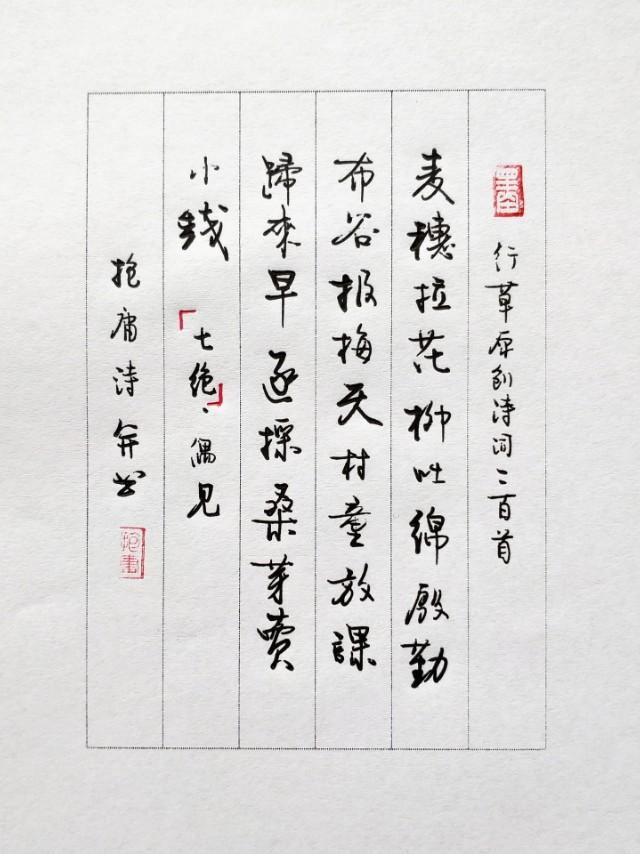 行草原创诗词二百首
麦穗拉花柳吐绵殷勤
布谷报梅天村童放課
歸來早逐採桑芽賣
小錢「七绝」·偶见
抱庸诗并书